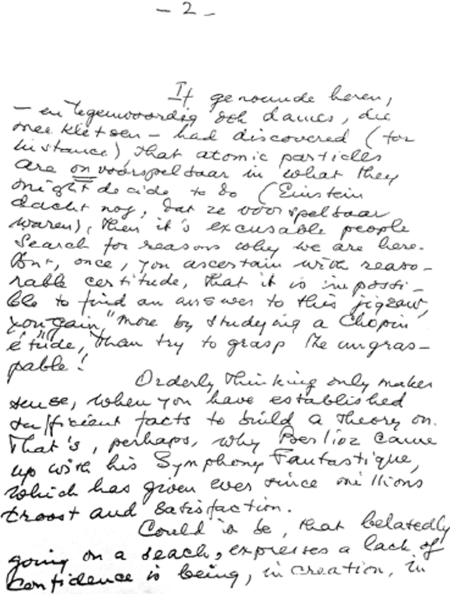 - 2 -
If genoemde heren,
- en tegenwoordig ook dames, die
mee kletsen - had discovered (for
instance) that atomic particles
are onvoorspelbaar in what they
might decide to do (Einstein
dacht nog, dat ze voorspelbaar
waren), then it's excusable people
search for reasons why we are here.
But, once, you ascertain with reaso-
nable certitude, that it is impossi-
ble to find an answer to this jigzaw,
you gain "more by studying a Chopin
étude," than try to grasp the ungras-
pable!
Orderly thinking only makes
sense, when you have established
sufficient facts to build a theory on.
That's, perhaps, why Berlioz came
up with his Symphony Fantastique,
which has given ever since millions
troost and satisfaction.
Could it be, that belatedly
going on a seach, expresses a lack of
confidence is being, in creation, in